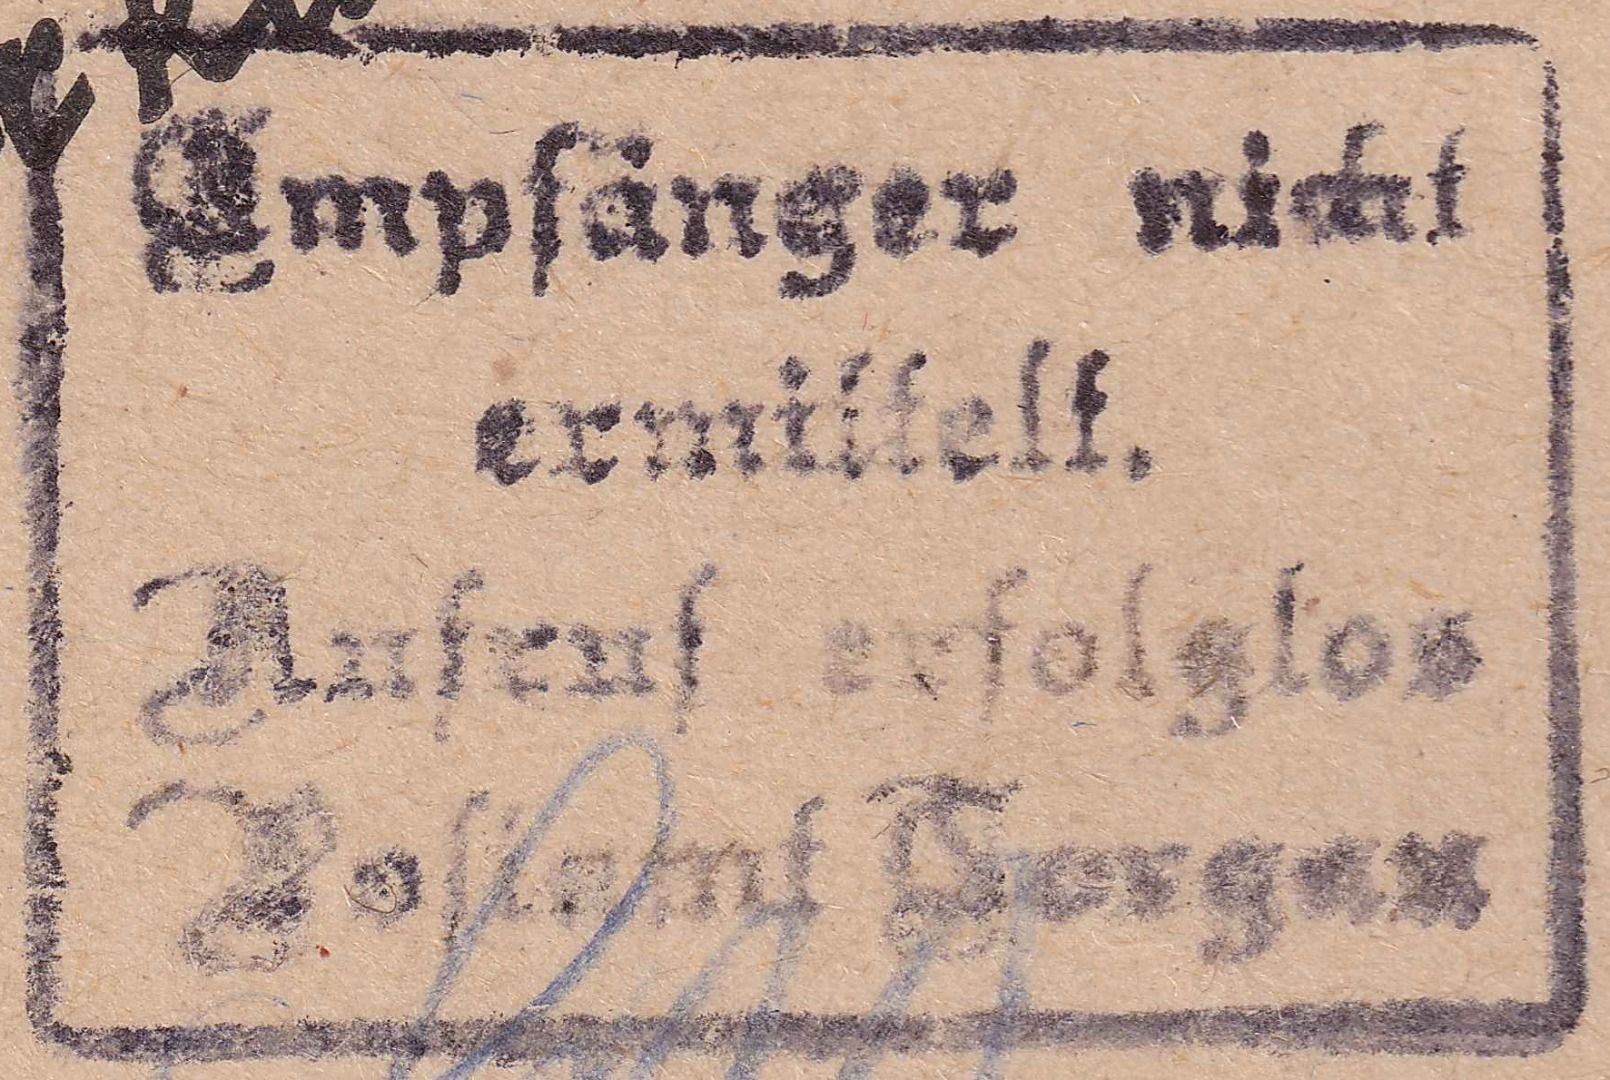 Empfänger nicht
ermittelt.
Aufruf erfolglos
Postamt Torgau